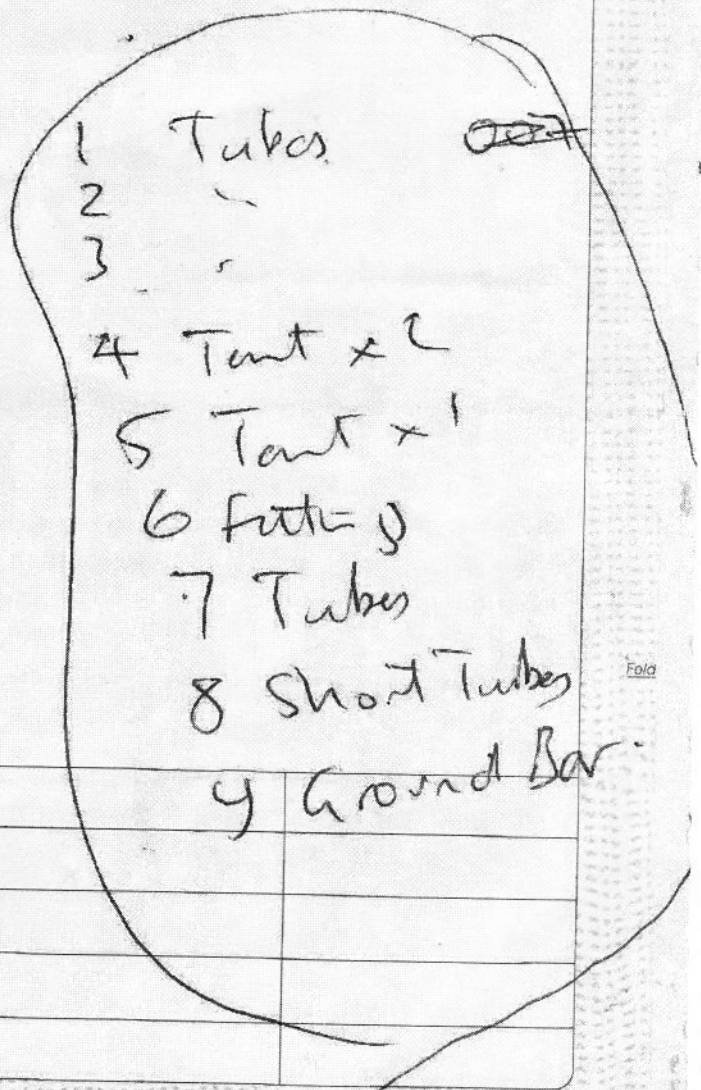 1 Tubes 007
2 "
3 "
4 Tent x 2
5 Tent x 1
6 Fittings
7 Tubes
8 Short Tubes
Fold
9 Ground Bar.